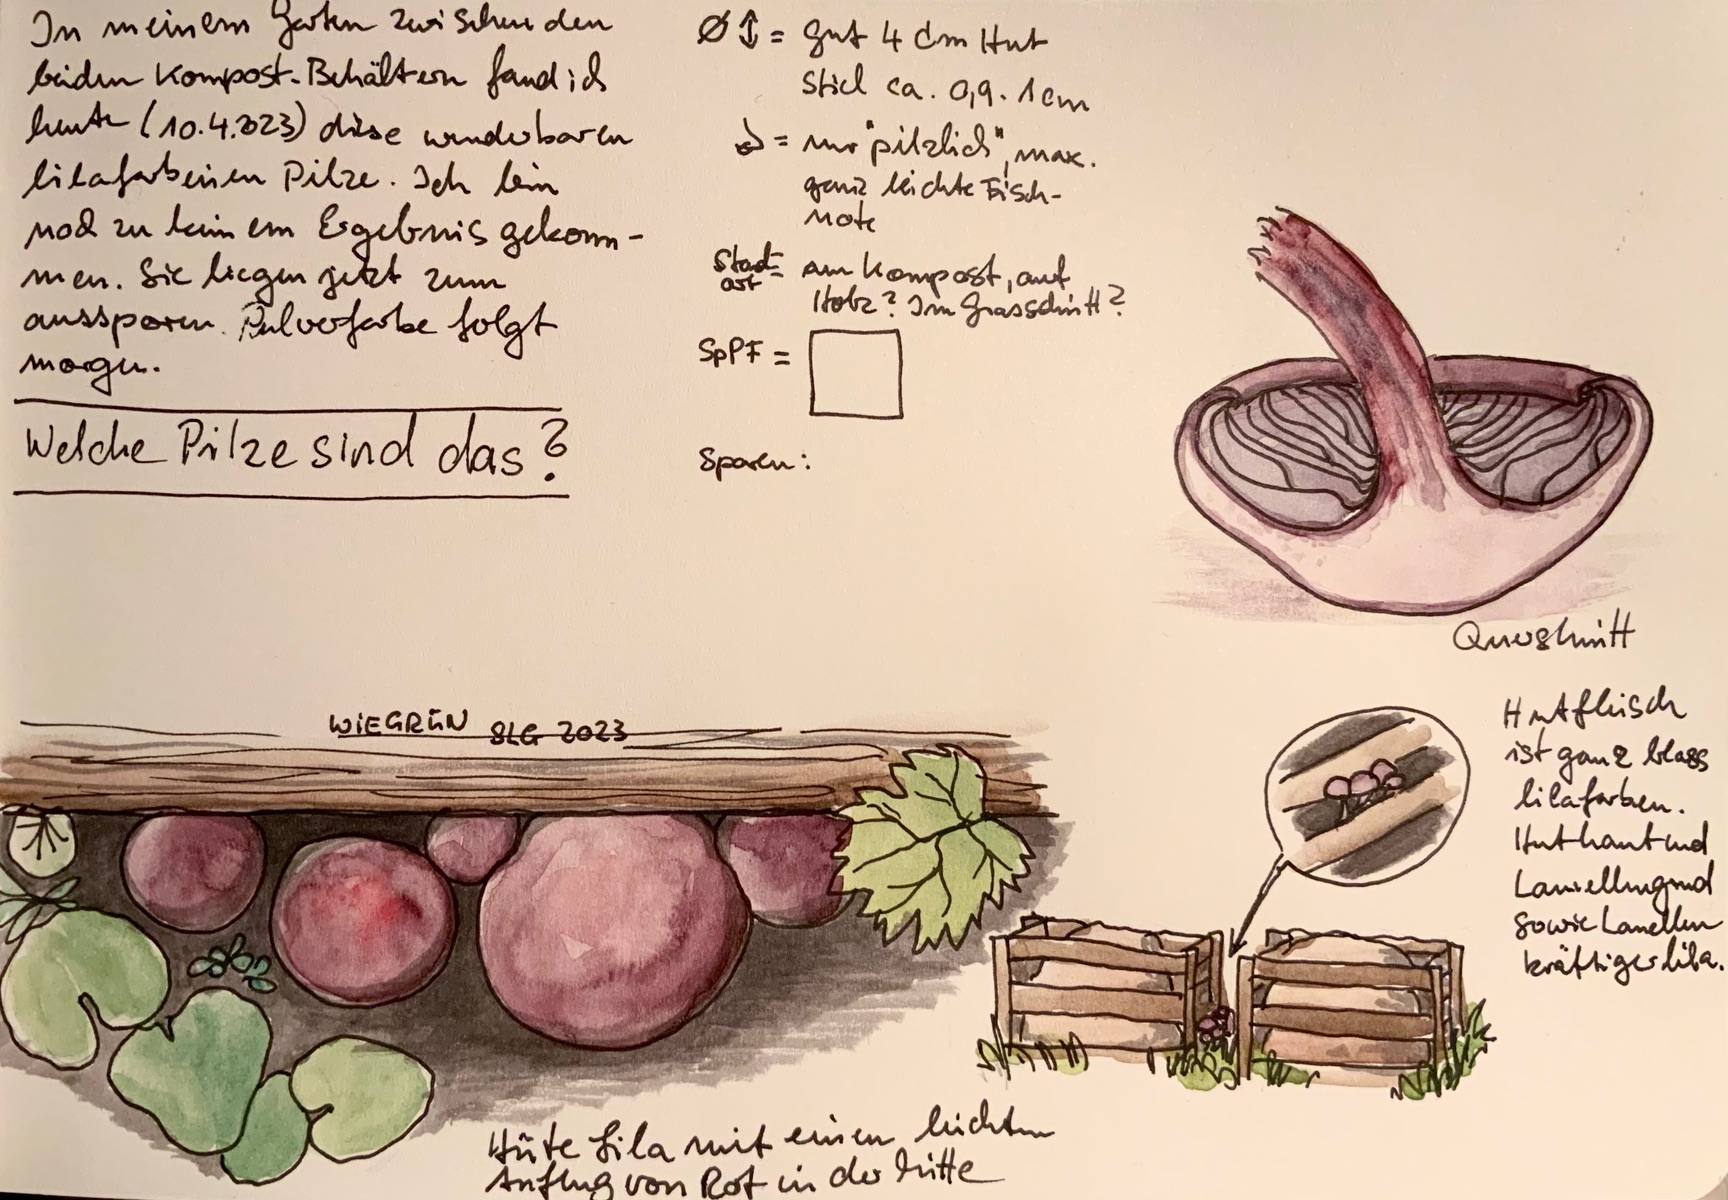 In meinem Garten zwischen den
beiden Kompost-Behältern fand ich
heute (10.4.2023) diese wunderbaren
lilafarbenen Pilze. Ich bin
noch zu keinem Ergebnis gekom-
men. Sie liegen jetzt zum
aussporen. Pulverfarbe folgt
morgen.
Welche Pilze sind das?
Ø ↕ = gut 4 cm Hut
Stiel ca. 0,9 - 1 cm
= nur "pilzlich", max.
ganz leichte Fisch-
note
Stand-
ort = am Kompost, auf
Holz? Im Grasschnitt?
SpPF =
Sporen:
Querschnitt
WIEGRÜN SLG 2023
Hutfleisch
ist ganz blass
lilafarben.
Huthaut und
Lamellengrund
sowie Lamellen
kräftiger lila.
Hüte Lila mit einem leichten
Anflug von Rot in der Mitte